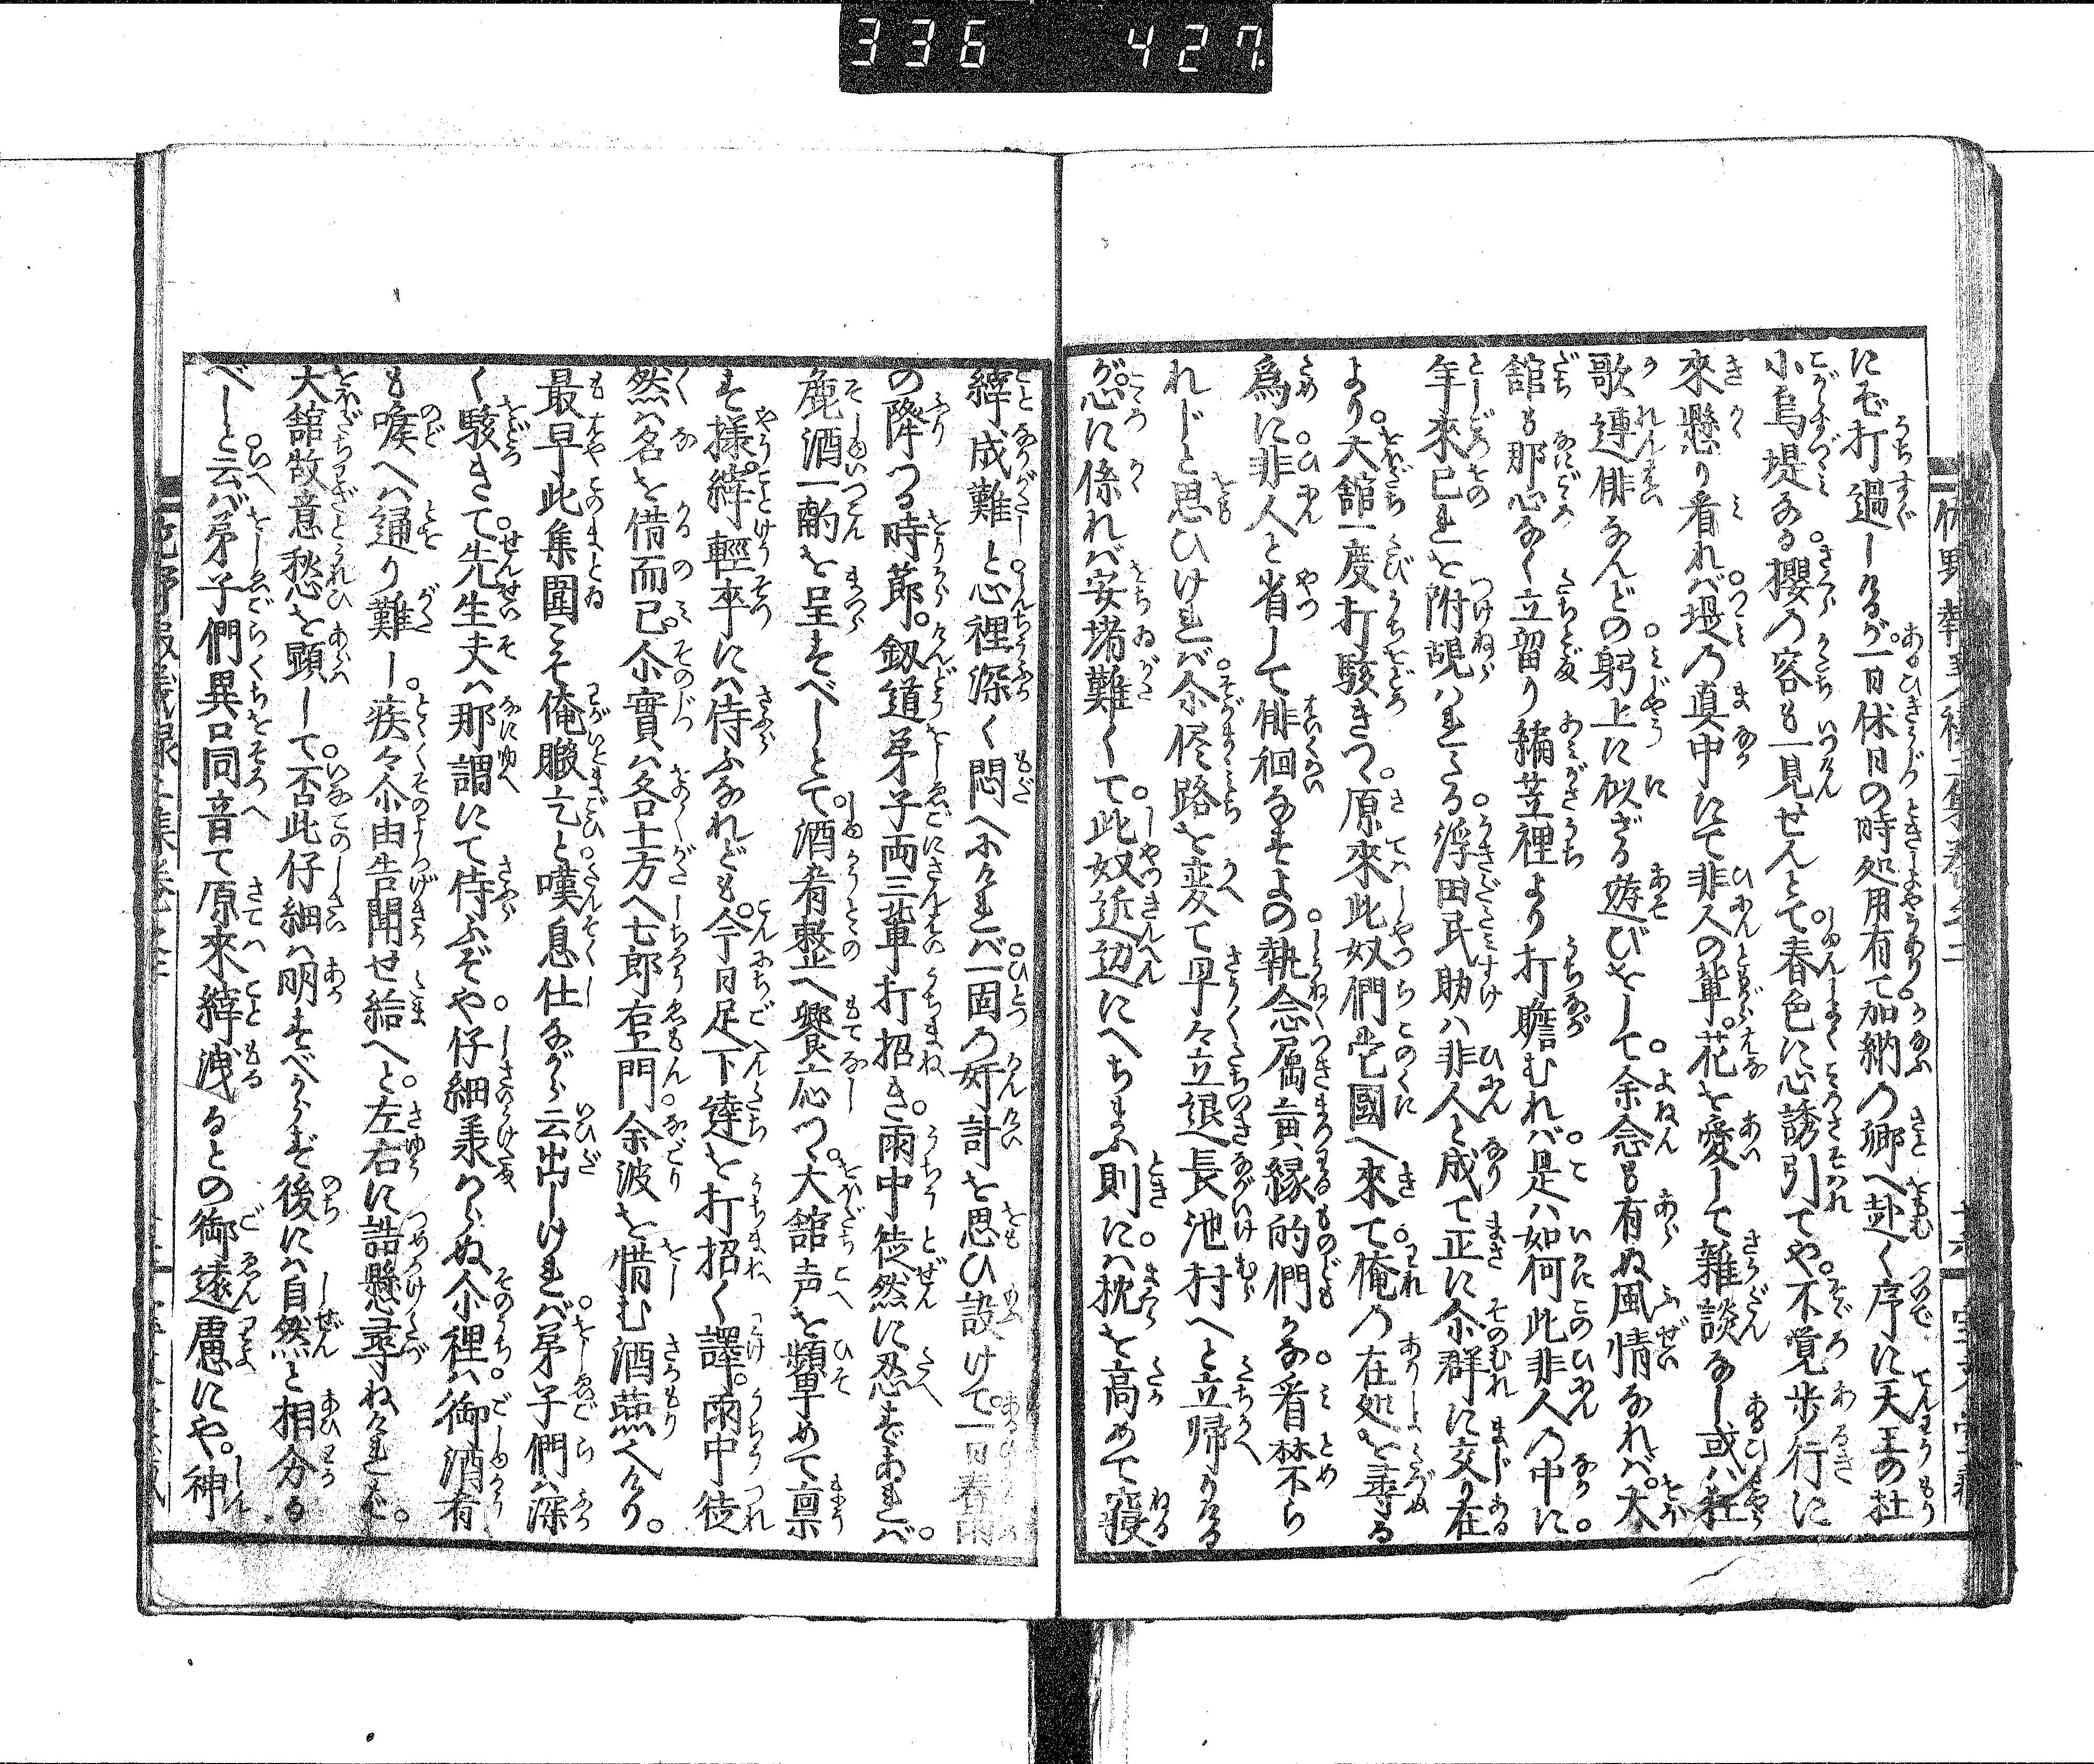 336 427
にぞ打過しけるが一日休日の時処用有て加納の郷へ赴く序に天王の社
小烏堤なる櫻の容も一見せんとて春色に心誘引てや不覚歩行に
來懸り看れバ堤の真中にて非人の輩花を愛して雜談なし或ハ狂
歌連俳なんどの躬上に似ざる遊びをして余念も有ぬ風情なれバ大
舘も那心なく立留り編笠裡より打瞻むれバ是ハ如何此非人の中に
年來己れを附覘ハれたる浮田民助ハ非人と成て正に余群に交り在
より大舘一度打駭きつゝ原來此奴們當國へ來て俺の在処を尋る
爲に非人と省して俳徊なすよの執念属賁縁的們かな看禁不ら
れじと思ひけれバ余怪路を変て早々立退長池村へと立帰りける
が心に係れバ安堵難くて此奴近辺にへちまふ則にハ枕を高めて寝
縡成難しと心裡深く悶へけれバ一固の奸計を思ひ設けて一日春雨
の降つる時節釼道弟子両三輩打招き雨中徒然に忍ずあれバ
麁酒一酌を呈すべしとて酒肴整へ饗応つゝ大舘声を顰めて禀
す様縡輕卒にハ侍ふなれども今日足下達を打招く譯雨中徒
然ハ名を借而已余實ハ各士方へ七郎右エ門余波を惜む酒燕へけり
最早此集圍こそ俺暇乞と嘆息仕ながら云出しけれバ弟子們ハ深
く駭きて先生夫ハ那謂にて侍ふぞや仔細羕らぬ余裡ハ御酒有
も喉へハ通り難し疾々余由告聞せ給へと左右に詰懸尋ねけれど
大舘故意愁を顕して否此仔細ハ明すべからず後にハ自然と相分る
べしと云バ弟子們異口同音て原來縡洩るとの御遠慮にや神